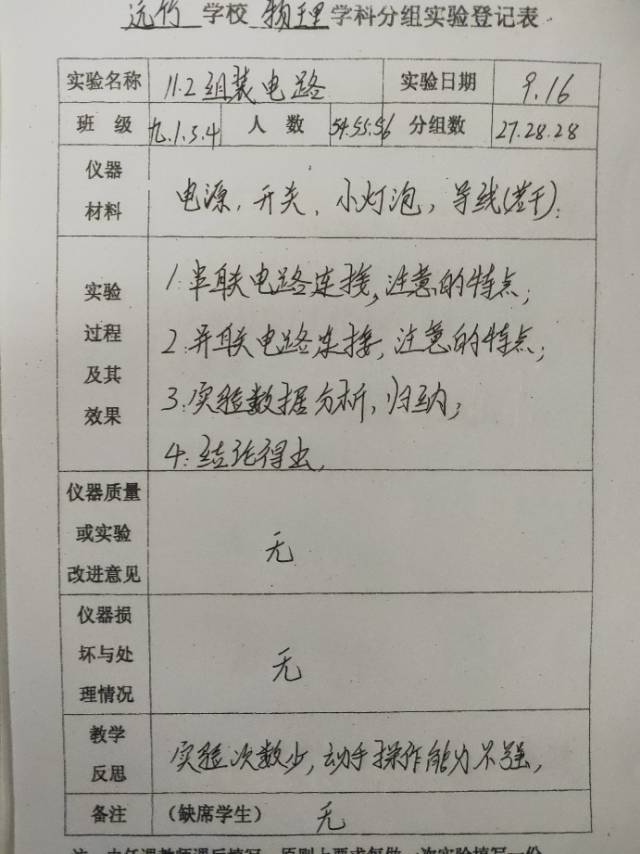 远竹 学校 物理 学科分组实验登记表
实验名称 11.2组装电路 实验日期 9.16
班 级 九.1.3.4 人 数 54.55.56 分组数 27.28.28
仪器
材料
电源,开关,小灯泡,导线(若干);
实验
过程
及其
效果
1.串联电路连接,注意的特点;
2.并联电路连接,注意的特点;
3.实验数据分析,归纳;
4.结论得出,
仪器质量
或实验
改进意见
无
仪器损
坏与处
理情况
无
教学
反思
实验次数少,动手操作能力不强,
备注 (缺席学生) 无